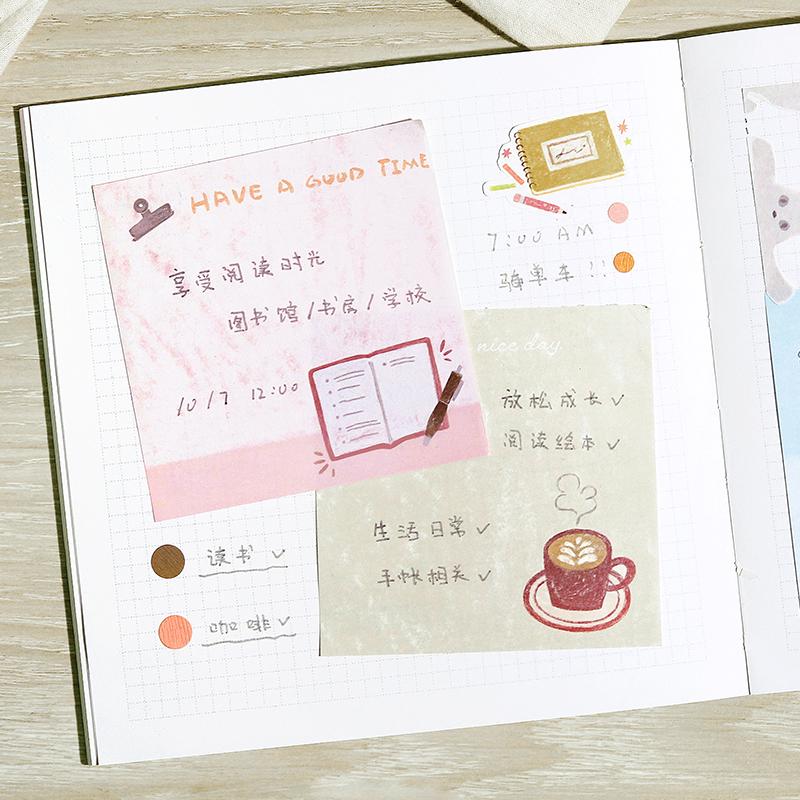 HAVE A GOOD TIME
享受阅读时光
图书馆/书房/学校
10/7 12:00
7:00 AM
骑单车!!
nice day
放松成长✓
阅读绘本✓
生活日常✓
手帐相关✓
读书✓
咖啡✓